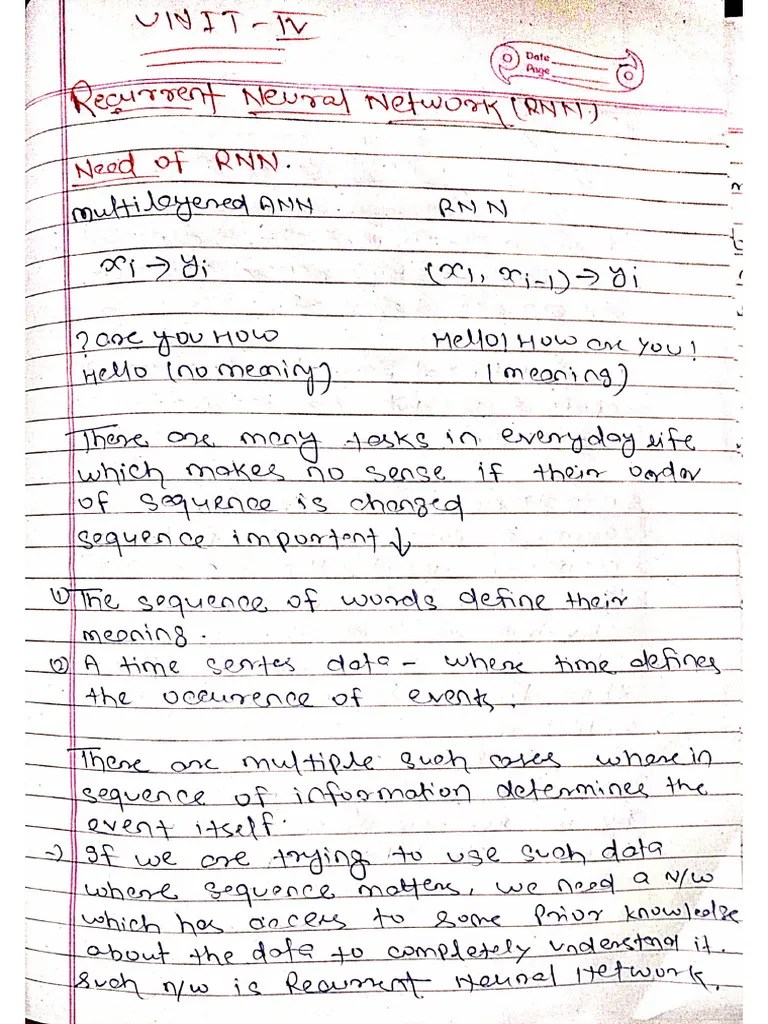 UNIT - IV
Date
Page
Recurrent Neural Network (RNN)
Need of RNN.
multilayered ANN RNN
xi → yi (xi, xi-1) → yi
? are you How Hello! How are you!
Hello (no meaning) (meaning)
There are many tasks in everyday life
which makes no sense if their order
of sequence is changed
sequence important ↓
1) The sequence of words define their
meaning.
2) A time series data - where time defines
the occurrence of events.
There are multiple such cases wherein
sequence of information determines the
event itself.
→ If we are trying to use such data
where sequence matters, we need a N/W
which has access to some prior knowledge
about the data to completely understand it.
Such n/w is Recurrent Neural Network.